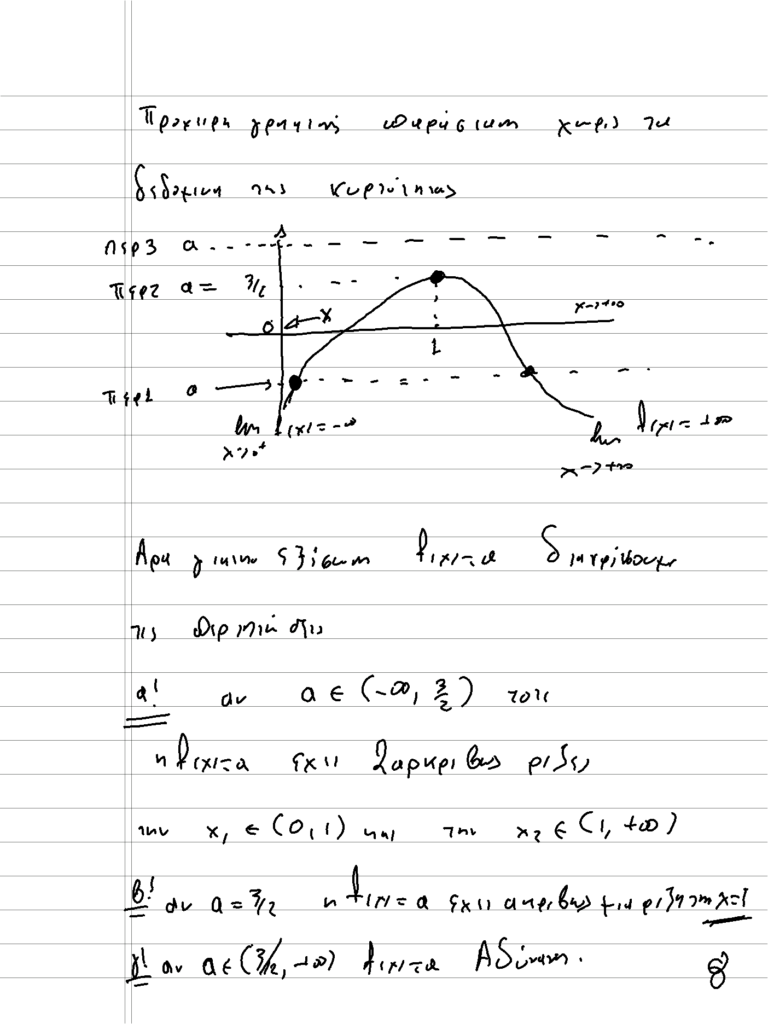 Πρόχειρη γραφική παράσταση χωρίς τα
δεδομένα της κυρτότητας
περ3 a
Περ2 a = 3/2
0 x x→+∞
1
Περ1 a
lim f(x)=-∞ lim f(x)=+∞
x→0+ x→+∞
Άρα για την εξίσωση f(x)=a διακρίνουμε
τις περιπτώσεις
α! αν a ∈ (-∞, 3/2) τότε
η f(x)=a έχει 2 ακριβώς ρίζες
την x₁ ∈ (0,1) και την x₂ ∈ (1,+∞)
β! αν a = 3/2 η f(x)=a έχει ακριβώς μια ρίζα την x=1
γ! αν a∈(3/2,+∞) f(x)=a Αδύνατη.
8